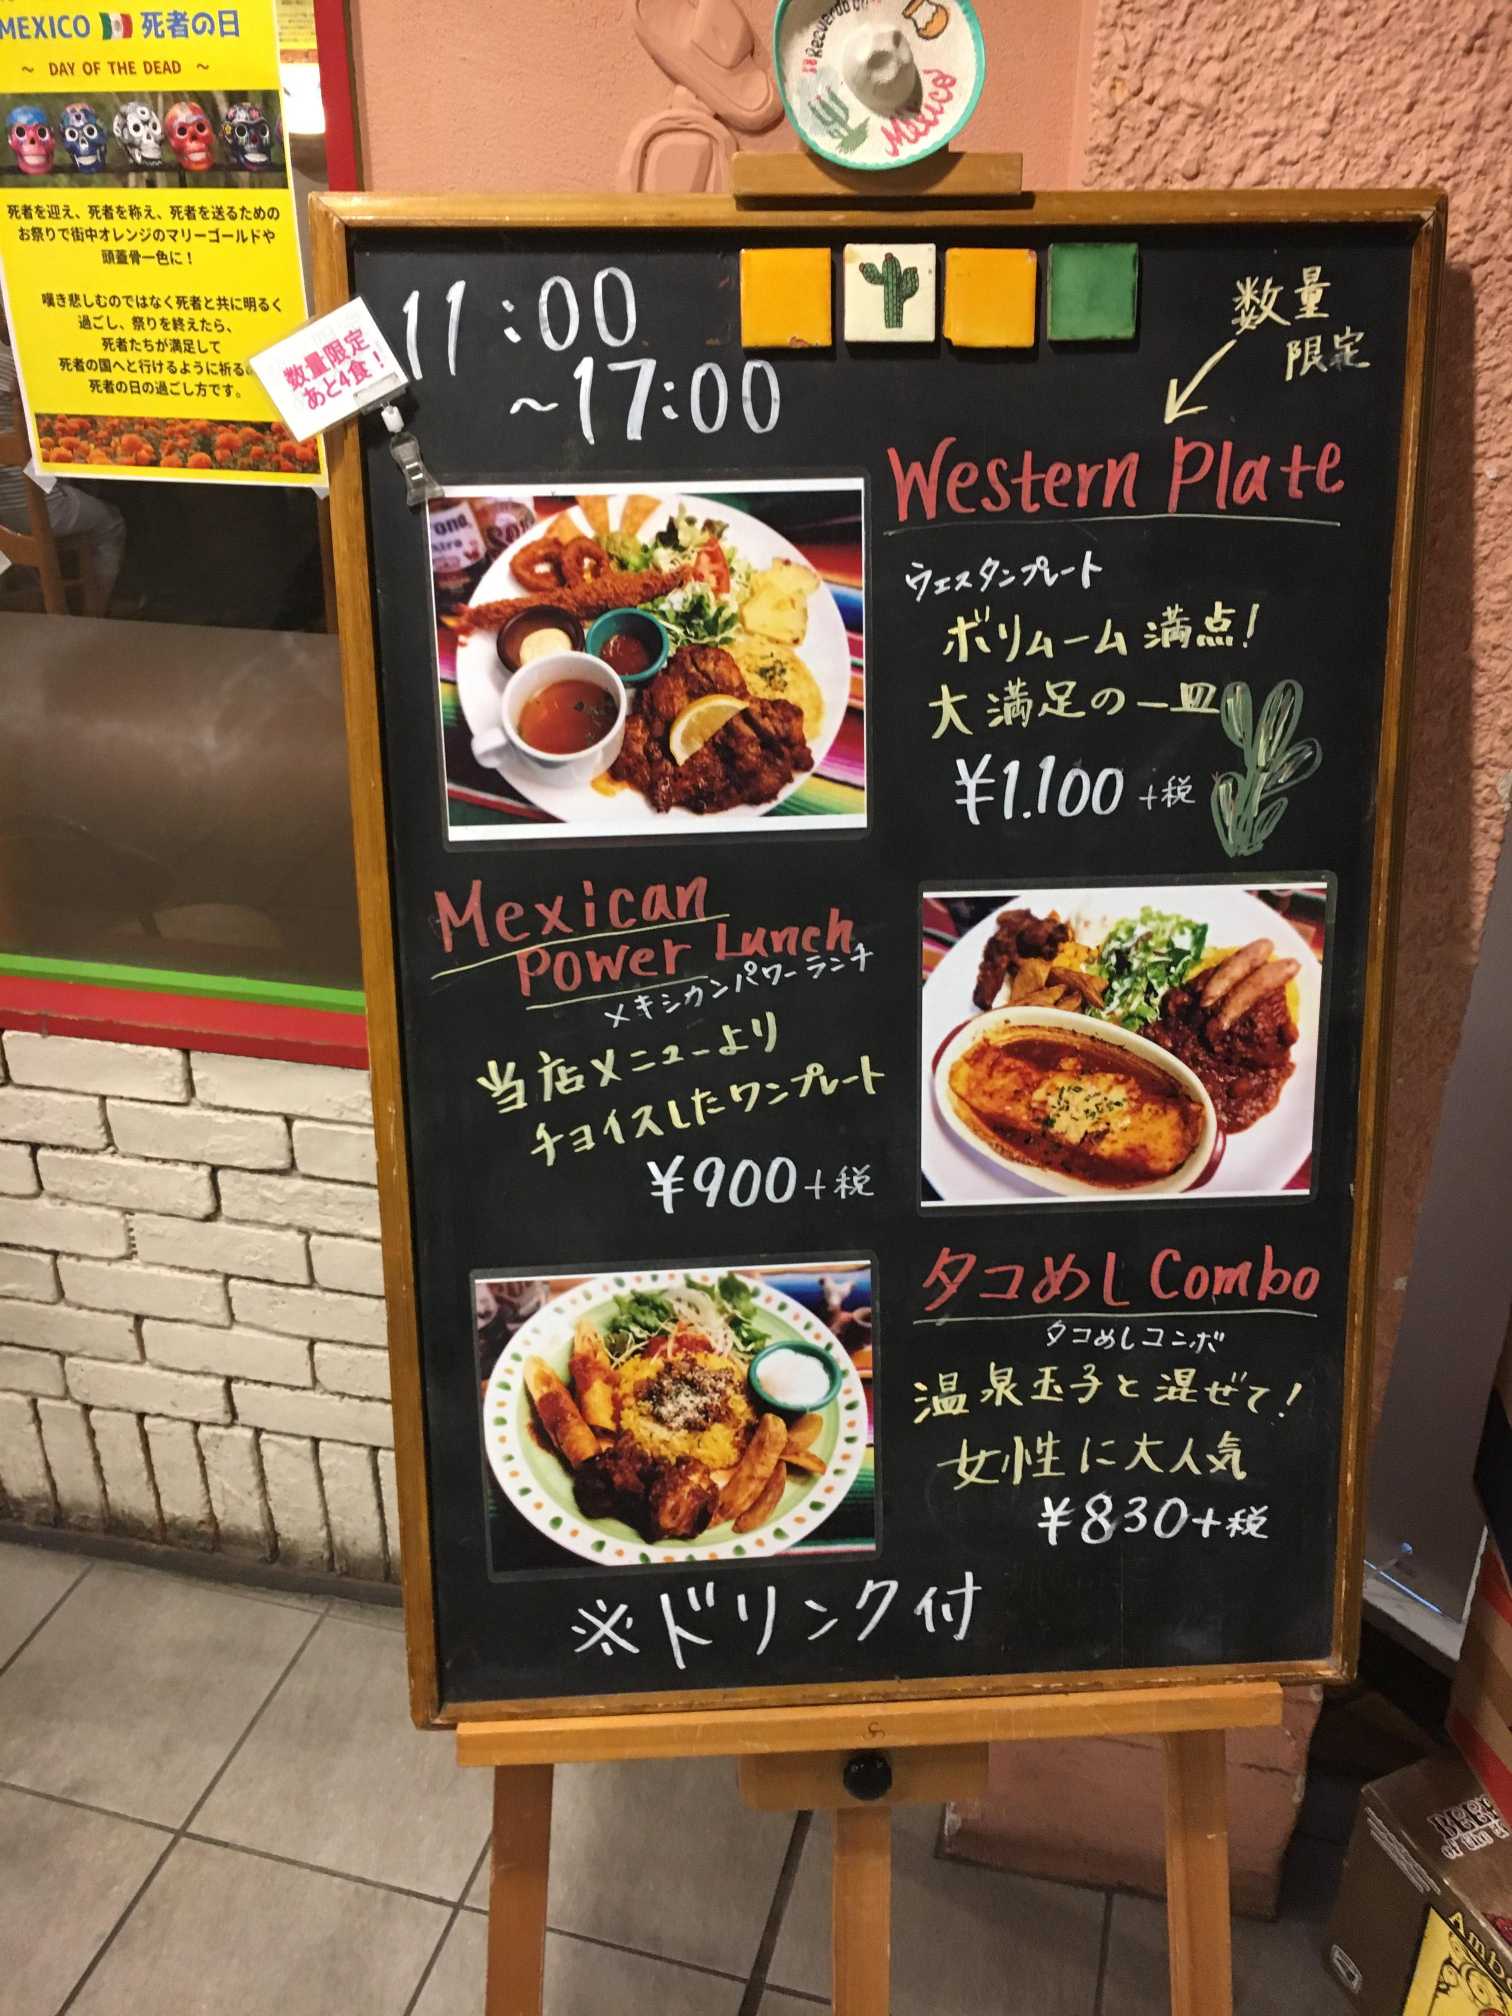 MEXICO 🇲🇽 死者の日
～ DAY OF THE DEAD ～
死者を迎え、死者を称え、死者を送るための
お祭りで街中オレンジのマリーゴールドや
頭蓋骨一色に！
嘆き悲しむのではなく死者と共に明るく
過ごし、祭りを終えたら、
死者たちが満足して
死者の国へと行けるように祈るの
死者の日の過ごし方です。
Recuerdo
México
数量限定
あと4食！
11:00
~17:00
数量
限定
Western Plate
ウェスタンプレート
ボリューム満点!
大満足の一皿
¥1.100+税
Mexican
Power Lunch
メキシカンパワーランチ
当店メニューより
チョイスしたワンプレート
¥900+税
タコめしCombo
タコめしコンボ
温泉玉子と混ぜて!
女性に大人気
¥830+税
※ドリンク付
BEER
of the
Amb